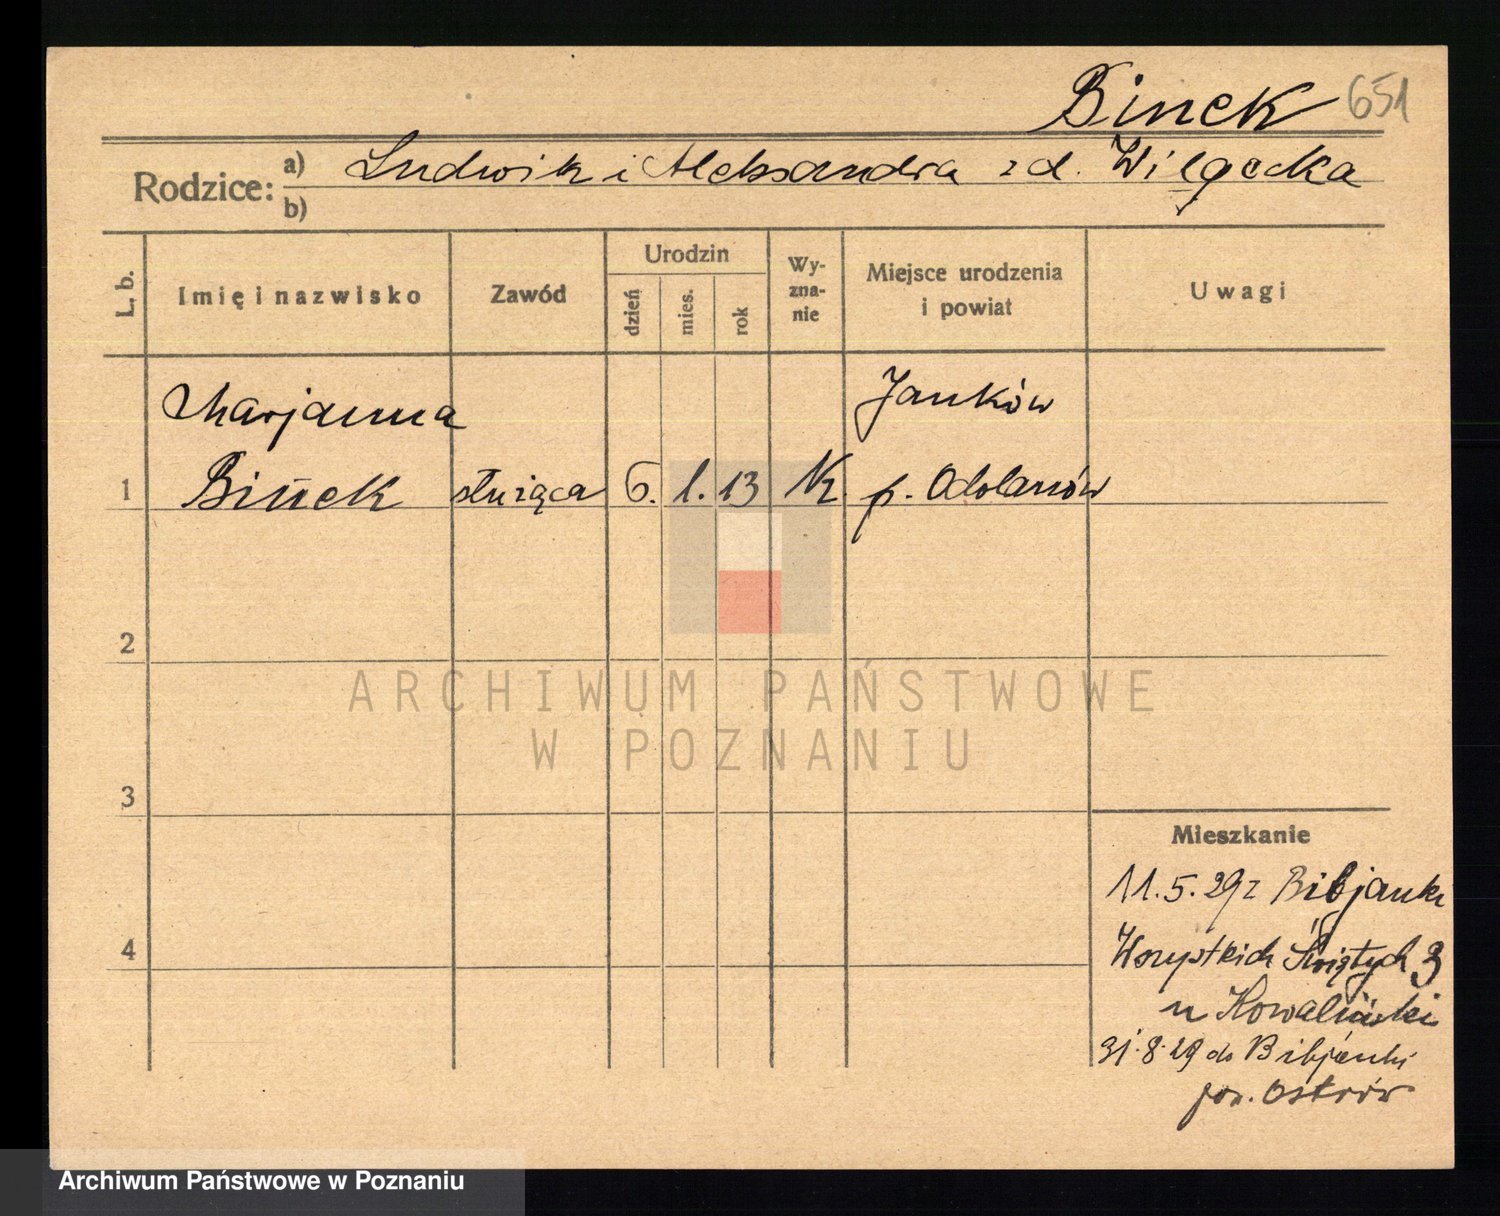 Binek 651
Rodzice: a) Ludwik i Aleksandra zd. Wilgocka
b)
L. b. Imię i nazwisko Zawód Urodzin dzień mies. rok Wyznanie Miejsce urodzenia i powiat Uwagi
Marjanna Janków
1 Binek służąca 6. 1. 13 p. Odolanów
2
3
4
Mieszkanie
11.5.29 z Bibjanki
Wszystkich Świętych 3
u Kowaliński
31.8.29 do Bibjanki
pow. Ostrów
ARCHIWUM PAŃSTWOWE
W POZNANIU
Archiwum Państwowe w Poznaniu